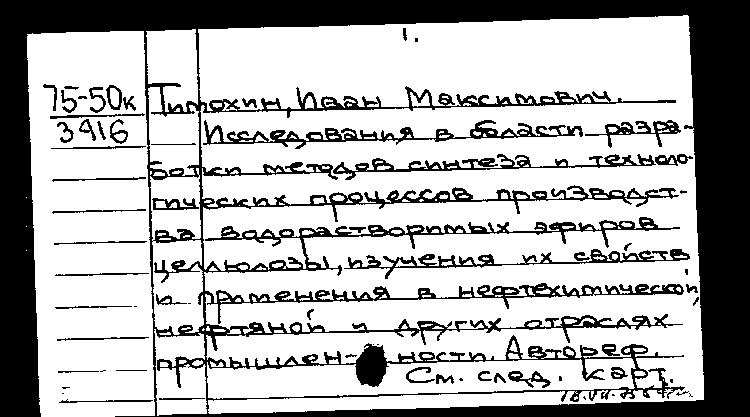 1.
75-50к
3416
Тимохин, Иван Максимович.
Исследования в области разра-
ботки методов синтеза и техноло-
гических процессов производст-
ва водорастворимых эфиров
целлюлозы, изучения их свойств
и применения в нефтехимической,
нефтяной и других отраслях
промышлен-ности. Автореф.
См. след. карт.